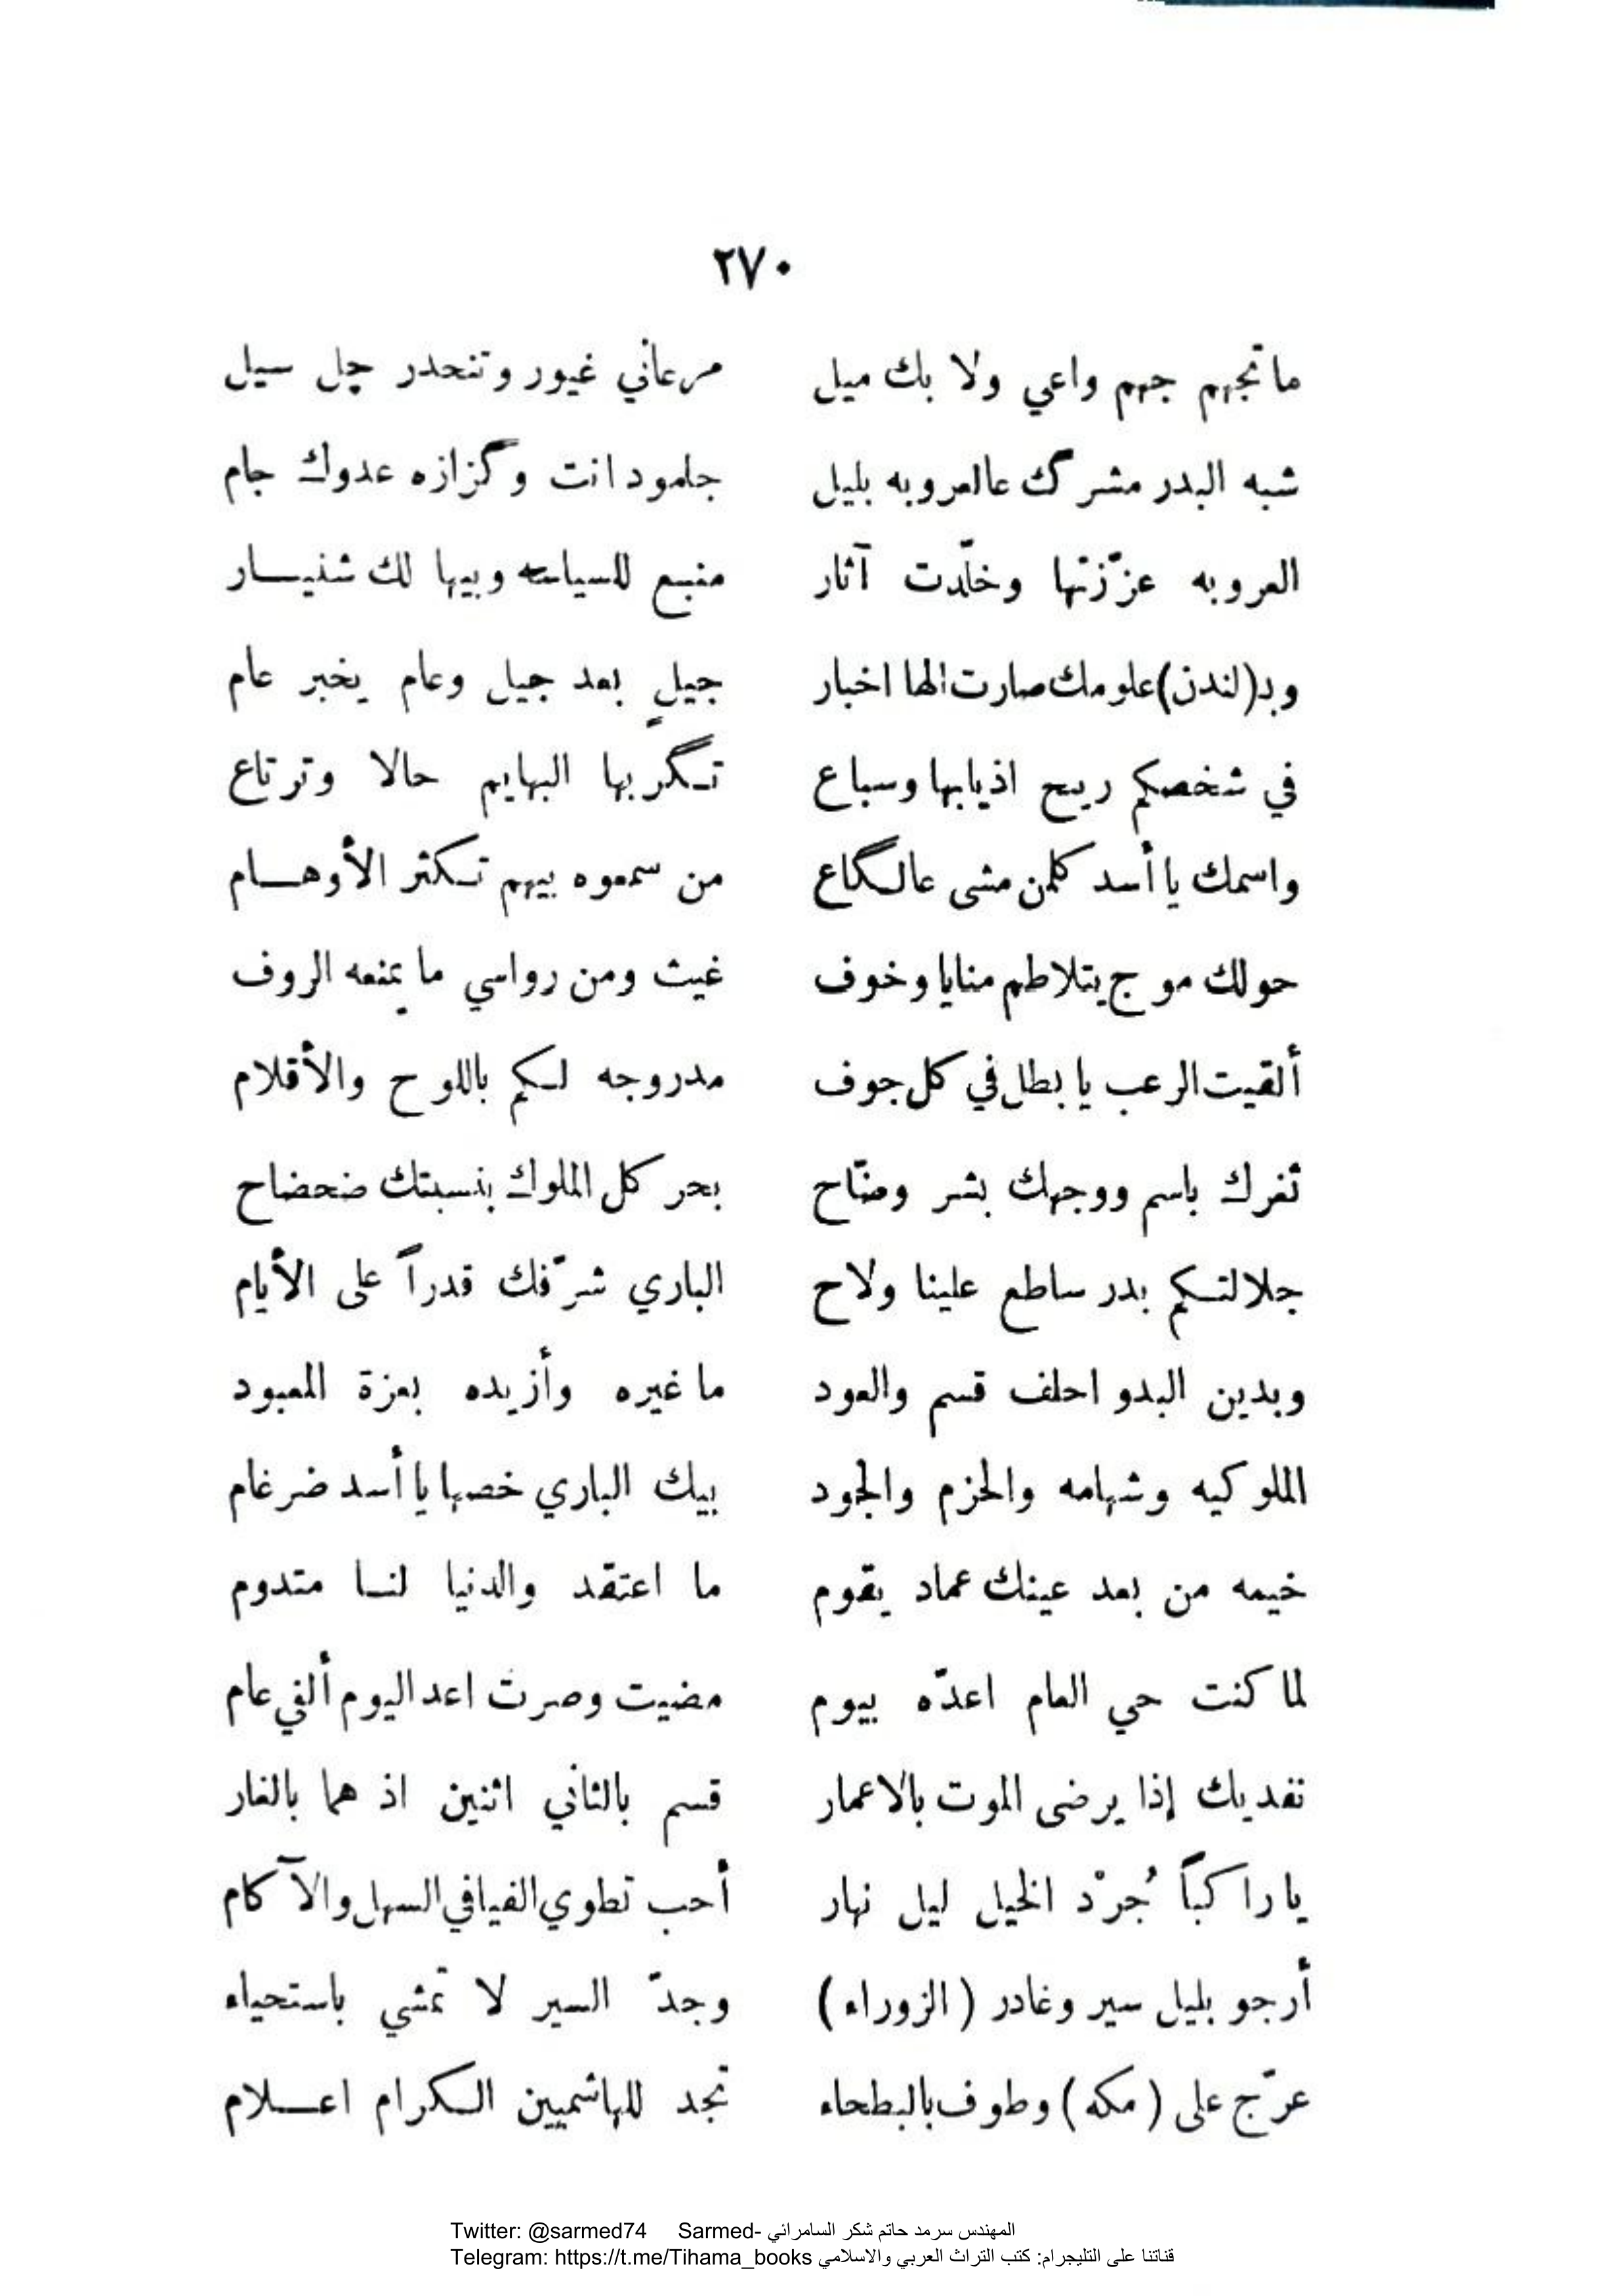 ٢٧٠
ما تجهم جهم واعي ولا بك ميل مرعاني غيور وتنحدر چل سيل
شبه البدر مشرگ عالعروبه بليل جلمود انت وگزازه عدوك جام
العروبه عزّزتها وخلّدت آثار منبع للسياسه وبيها لك شنيـــار
وبـ(لندن) علومك صارت الها اخبار جيلٍ بعد جيل وعام يخبر عام
في شخصكم ريح اذيابها وسباع تـگربها البهايم حالا وترتاع
واسمك يا أسد كلمن مشى عالـگاع من سمعوه بيهم تـكثر الأوهـــام
حولك موج يتلاطم منايا وخوف غيث ومن رواسي ما يمنعه الروف
ألقيت الرعب يا بطل في كل جوف مدروجه لـكم باللوح والأقلام
ثغرك باسم ووجهك بشر ومنّاح بحر كل الملوك بنسبتك ضحضاح
جلالتـكم بدر ساطع علينا ولاح الباري شرّفك قدراً على الأيام
وبدين البدو احلف قسم والعود ما غيره وأزيده بعزة المعبود
الملوكيه وشهامه والحزم والجود بيك الباري خصها يا أسد ضرغام
خيمه من بعد عينك عماد يقوم ما اعتقد والدنيا لنـــا متدوم
لما كنت حي العام اعدّه بيوم مضيت وصرت اعد اليوم ألفي عام
نفديك إذا يرضى الموت بالاعمار قسم بالثاني اثنين اذ هما بالغار
يا راكباً جُردْ الخيل ليل نهار أحب تطوي الفيافي السهل والآكام
أرجو بليل سير وغادر (الزوراء) وجدّ السير لا تمشي باستحياء
عرّج على (مكه) وطوف بالبطحاء تجد للهاشميين الـكرام اعـــلام
Twitter: @sarmed74 Sarmed- المهندس سرمد حاتم شكر السامرائي
Telegram: https://t.me/Tihama_books قناتنا على التليجرام: كتب التراث العربي والاسلامي